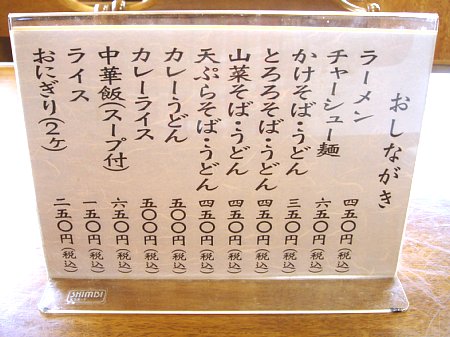 おしながき
ラーメン 四五〇円(税込)
チャーシュー麺 六五〇円(税込)
かけそば・うどん 三五〇円(税込)
とろろそば・うどん 四五〇円(税込)
山菜そば・うどん 四五〇円(税込)
天ぷらそば・うどん 四五〇円(税込)
カレーうどん 五〇〇円(税込)
カレーライス 五〇〇円(税込)
中華飯(スープ付) 六五〇円(税込)
ライス 一五〇円(税込)
おにぎり(2ヶ) 二五〇円(税込)
SHIMBI